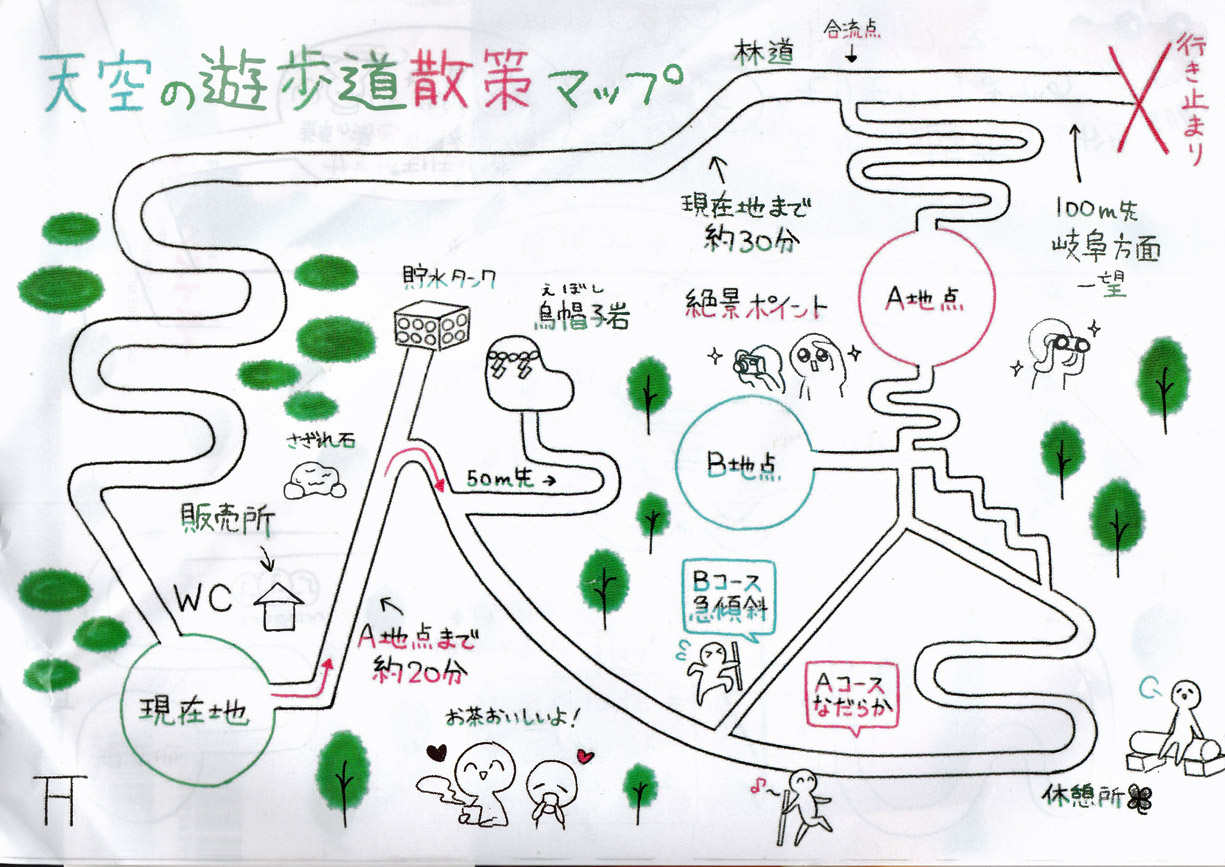 天空の遊歩道散策マップ
林道
合流点
行き止まり
現在地まで
約30分
100m先
岐阜方面
一望
貯水タンク
えぼし
烏帽子岩
絶景ポイント
A地点
さざれ石
50m先→
B地点
販売所
WC
Bコース
急傾斜
A地点まで
約20分
Aコース
なだらか
現在地
お茶おいしいよ!
休憩所